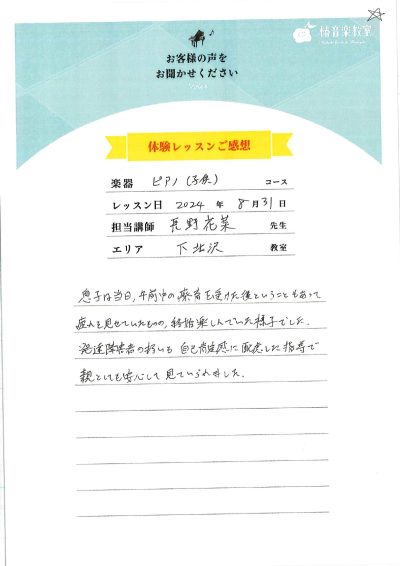 椿音楽教室
お客様の声を
お聞かせください
Voice
体験レッスンご感想
楽器 ピアノ(子供) コース
レッスン日 2024 年 8 月 31 日
担当講師 長野 花菜 先生
エリア 下北沢 教室
息子は当日、午前中の療育を受けた後ということもあって
疲れを見せていたものの、終始楽しんでいた様子でした。
発達障害者の扱いも 自己肯定感に配慮した指導で
親としても安心して見ていられました。